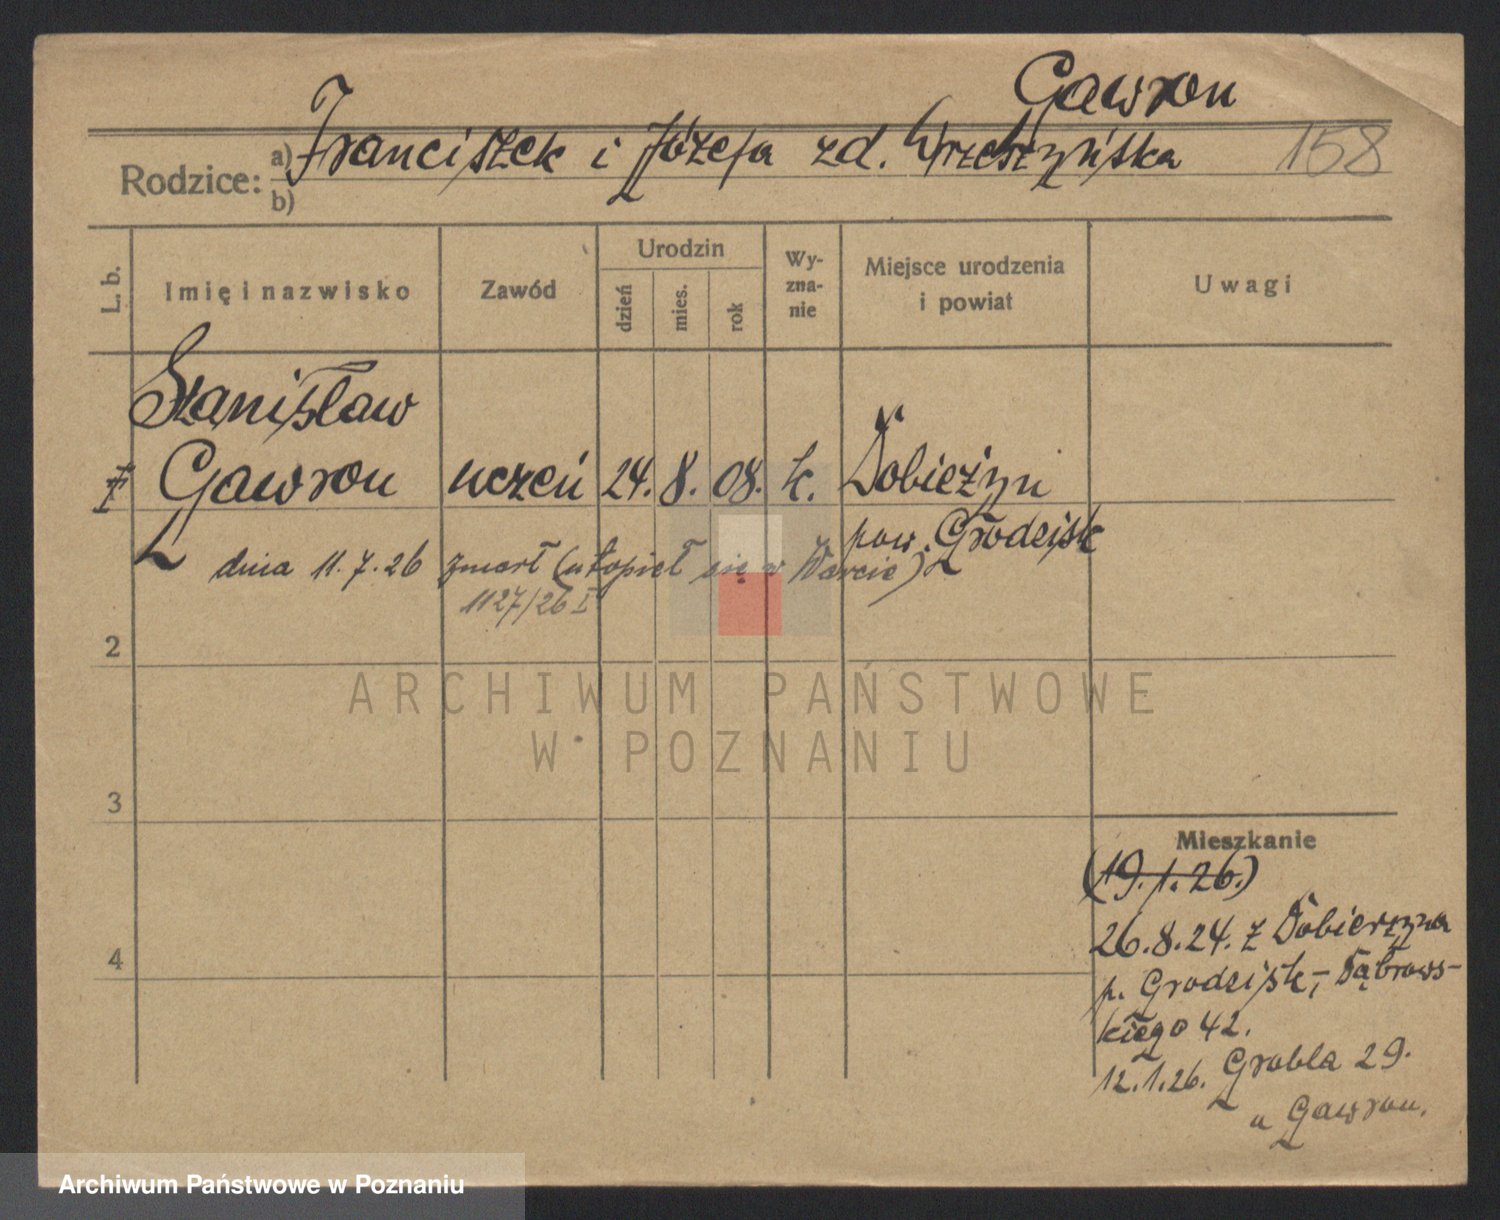 Gawron
Rodzice: a) Franciszek i Józefa zd. Wrzeszczyńska 158
b)
L. b.
Imię i nazwisko
Zawód
Urodzin
dzień
mies.
rok
Wy-
zna-
nie
Miejsce urodzenia
i powiat
Uwagi
Stanisław
Gawron uczeń 24. 8. 08. k. Dobieżyn
pow. Grodzisk
dnia 11.7.26 zmarł (utopieł się w Warcie)
1127/26 I
2
3
4
Mieszkanie
(19.1.26.)
26.8.24. z Dobierzyna
p. Grodzisk,- Dąbrows-
kiego 42.
12.1.26. Grobla 29.
u Gawron.
ARCHIWUM PAŃSTWOWE
W POZNANIU
Archiwum Państwowe w Poznaniu